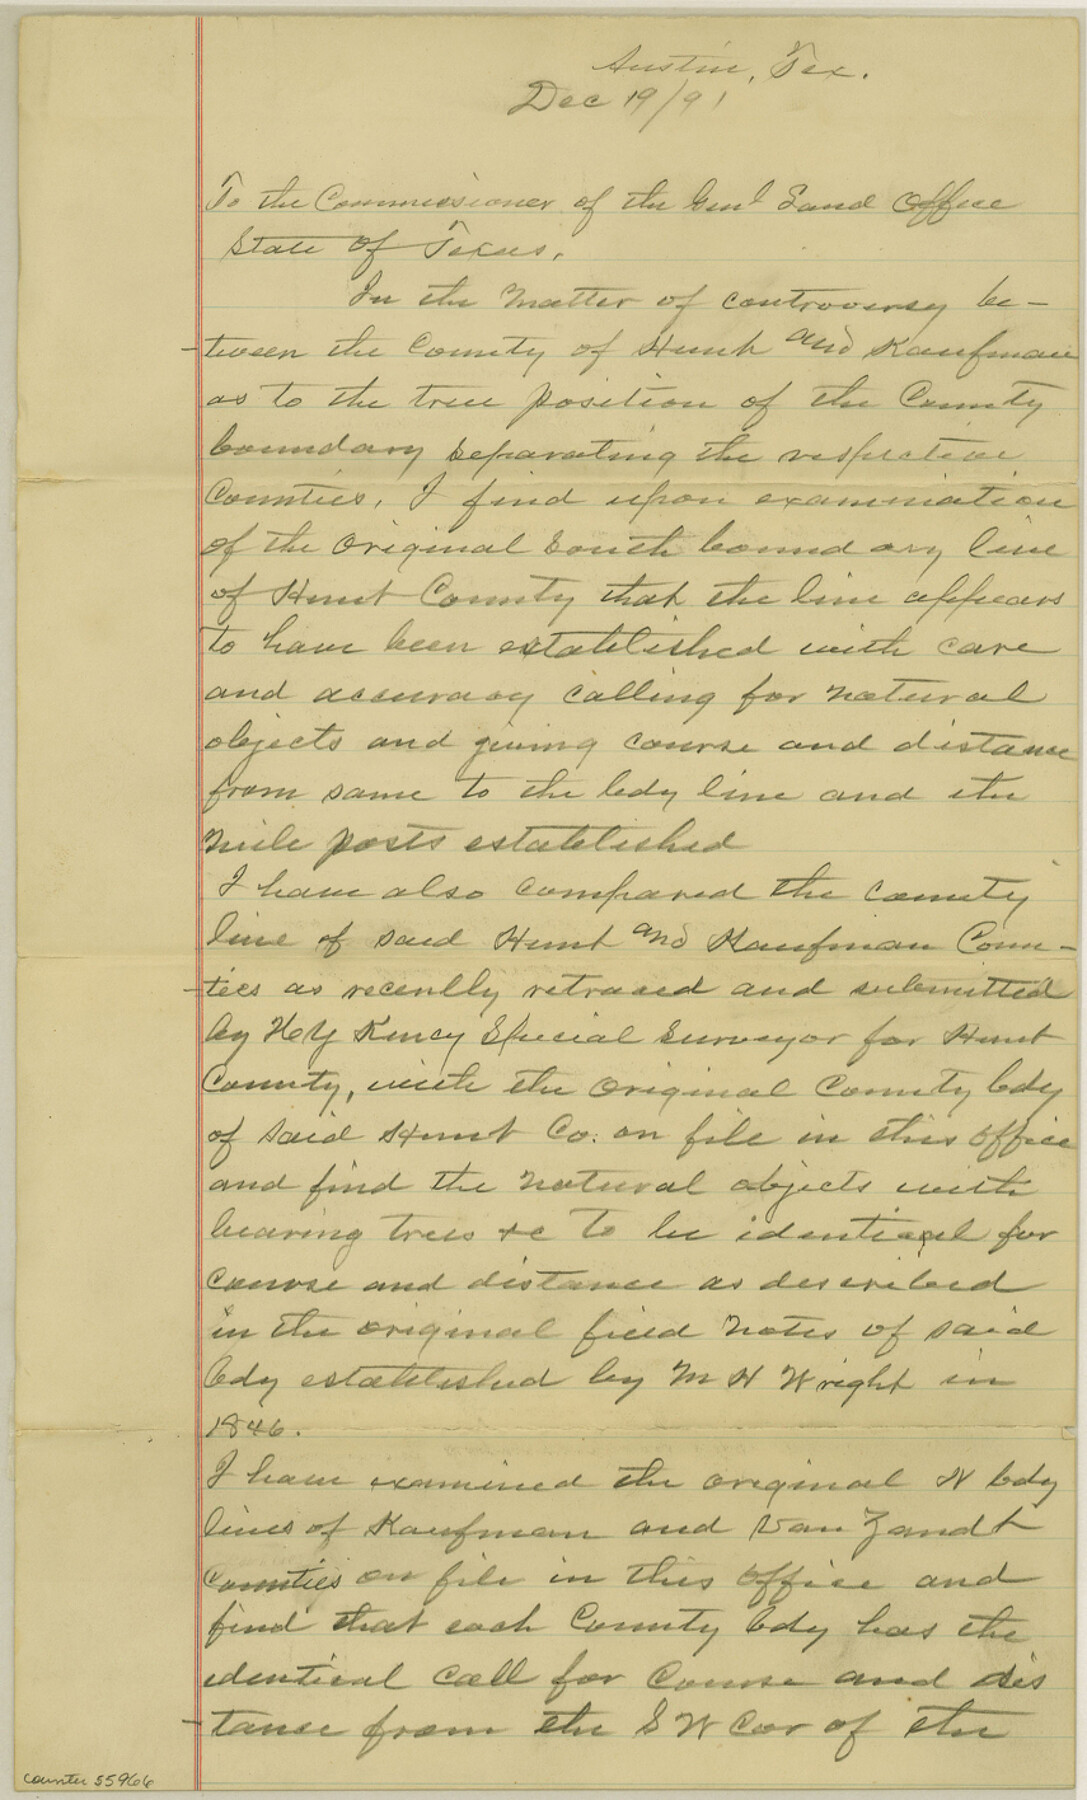 Austin, Tex.
Dec 19/91
To the Commissioner of the Genl Land Office
State of Texas.
In the Matter of controversy be-
tween the County of Hunt and Kaufman
as to the true position of the County
boundary separating the respective
Counties, I find upon examination
of the Original South boundary line
of Hunt County that the line appears
to have been established with care
and accuracy calling for natural
objects and giving course and distance
from same to the bdy line and the
Mile posts established
I have also compared the county
line of said Hunt and Kaufman Coun-
ties as recently retraced and submitted
by Key Special Surveyor for Hunt
County, with the Original County bdy
of said Hunt Co. on file in this office
and find the natural objects with
bearing trees &c to be identical for
course and distance as described
in the original field notes of said
bdy established by M H Wright in
1846.
I have examined the original N bdy
lines of Kaufman and Van Zandt
Counties on file in this office and
find that each County bdy has the
identical call for course and dis
tance from the S W Cor of the
counter 55966